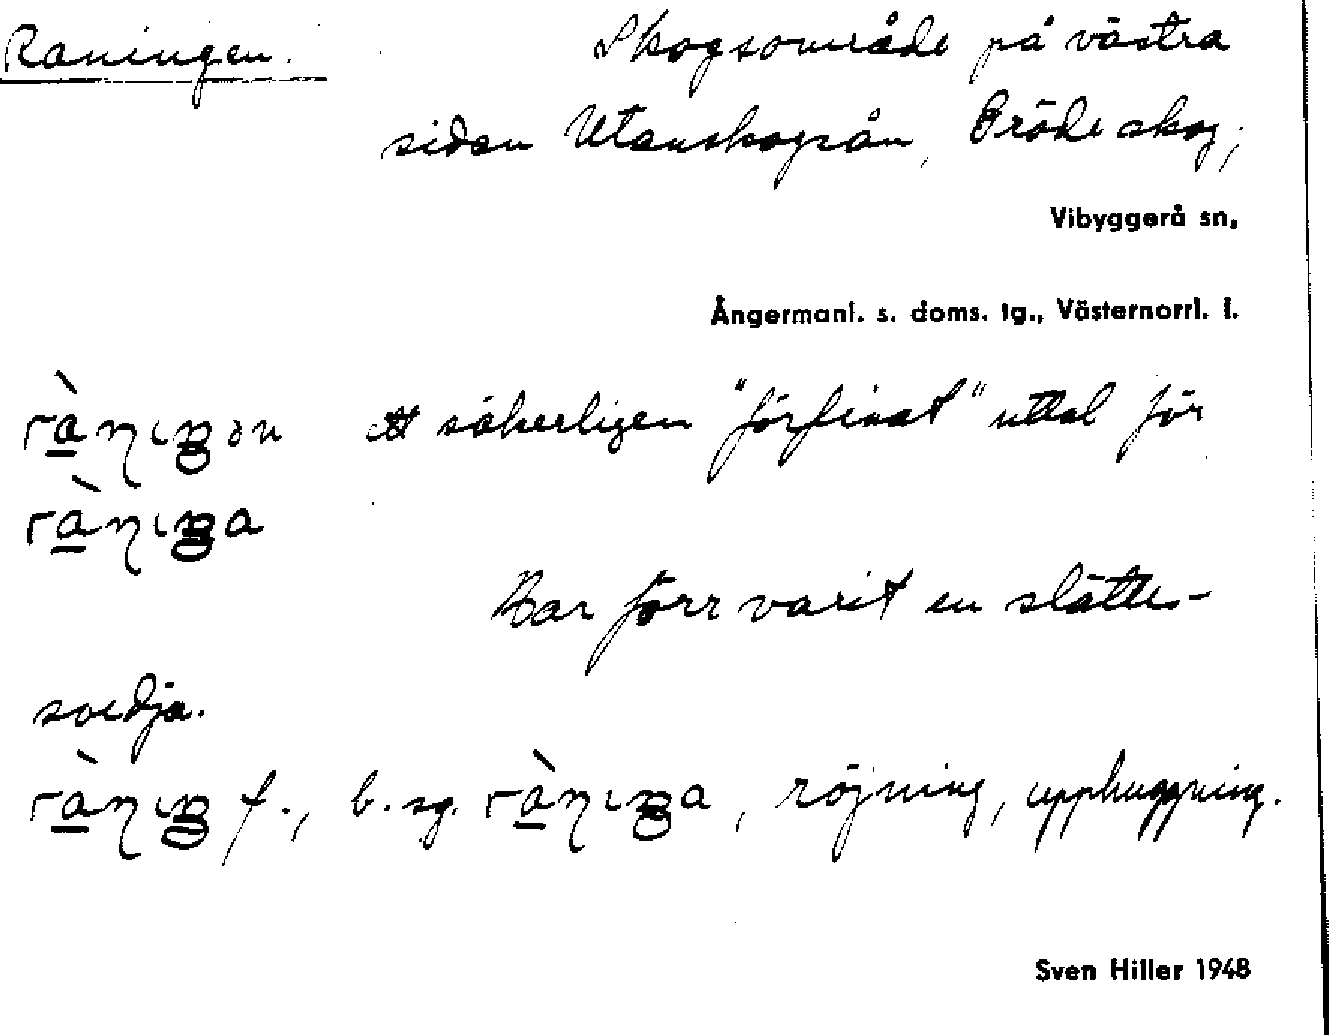 Raningen. Skogsområde på västra
sidan Utanskogsån, Bröde skog,
Vibyggerå sn,
Ångermanl. s. doms. tg., Västernorrl. l.
rànıŋən ett säkerligen "förfinat" uttal för
rànıŋa
Har förr varit en slåtte-
svedja.
rànıŋ f., b. sg. rànıŋa, röjning, upphuggning.
Sven Hiller 1948